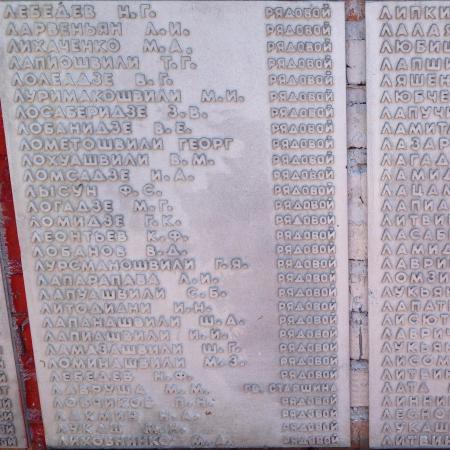 ЛЕБЕДЕВ Н.Г. РЯДОВОЙ
ЛАРВЕНЬЯН Л.И. РЯДОВОЙ
ЛИХАЧЕНКО М.А. РЯДОВОЙ
ЛАПИОШВИЛИ Т.Г. РЯДОВОЙ
ЛОЛЕАДЗЕ В.Г. РЯДОВОЙ
ЛУРИМАКОШВИЛИ М.И. РЯДОВОЙ
ЛОСАБЕРИДЗЕ З.В. РЯДОВОЙ
ЛОБАНИДЗЕ В.Е. РЯДОВОЙ
ЛОМЕТОШВИЛИ ГЕОРГ РЯДОВОЙ
ЛОХУАШВИЛИ В.М. РЯДОВОЙ
ЛОМСАДЗЕ И.А. РЯДОВОЙ
ЛЫСУН Ф.С. РЯДОВОЙ
ЛОГАДЗЕ М.Г. РЯДОВОЙ
ЛОМИДЗЕ Г.К. РЯДОВОЙ
ЛЕОНТЬЕВ К.Ф. РЯДОВОЙ
ЛОБАНОВ В.Д. РЯДОВОЙ
ЛУРСМАНОШВИЛИ Г.Я. РЯДОВОЙ
ЛАПАРАПАВА Л.И. РЯДОВОЙ
ЛАПУАШВИЛИ С.Б. РЯДОВОЙ
ЛИТОДИАНИ И.Н. РЯДОВОЙ
ЛАПАНАШВИЛИ Ш.Д. РЯДОВОЙ
ЛАПИАШВИЛИ И.И. РЯДОВОЙ
ЛАМАЗАШВИЛИ Ш.Г. РЯДОВОЙ
ЛОМИНАШВИЛИ М.З. РЯДОВОЙ
ЛЕБЕДЕВ Н.Ф. РЯДОВОЙ
М.М. ГВ. СТАРШИНА
РЯДОВОЙ
РЯДОВОЙ
ЛУКАШ РЯДОВОЙ
РЯДОВОЙ
ЛИПКИ
ЛАЛАЯ
ЛЮБИШ
ЛАПШИ
ЛЯШЕН
ЛЮБЧЕ
ЛАПУЧ
ЛАМИТ
ЛАЗАР
ЛАГАД
ЛАМИД
ЛАЦАМ
ЛАПИА
ЛИТВИ
ЛАСАБ
ЛАМИД
ЛАВРИ
ЛОМЗИ
ЛУКЬЯ
ЛАПАТ
ЛИСЮТ
ЛАБЕР
ЛУКЬЯ
ЛИСОМ
ЛИТВИ
ЛАТА
ЛИННИ
ЛЕСНО
ЛУКАШ
ЛИТВИН